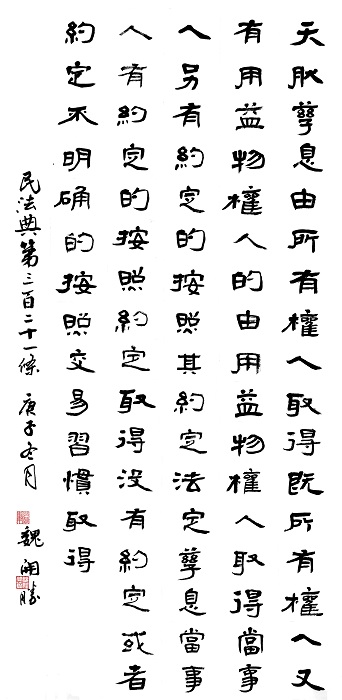 天肰孳息由所有權人取得既所有權人又
有用益物權人的由用益物權人取得當事
人另有約定的按照其約定法定孳息當事
人有約定的按照約定取得没有約定或者
約定不明确的按照交易習慣取得
民法典第三百二十一條 庚子冬月 魏開勝